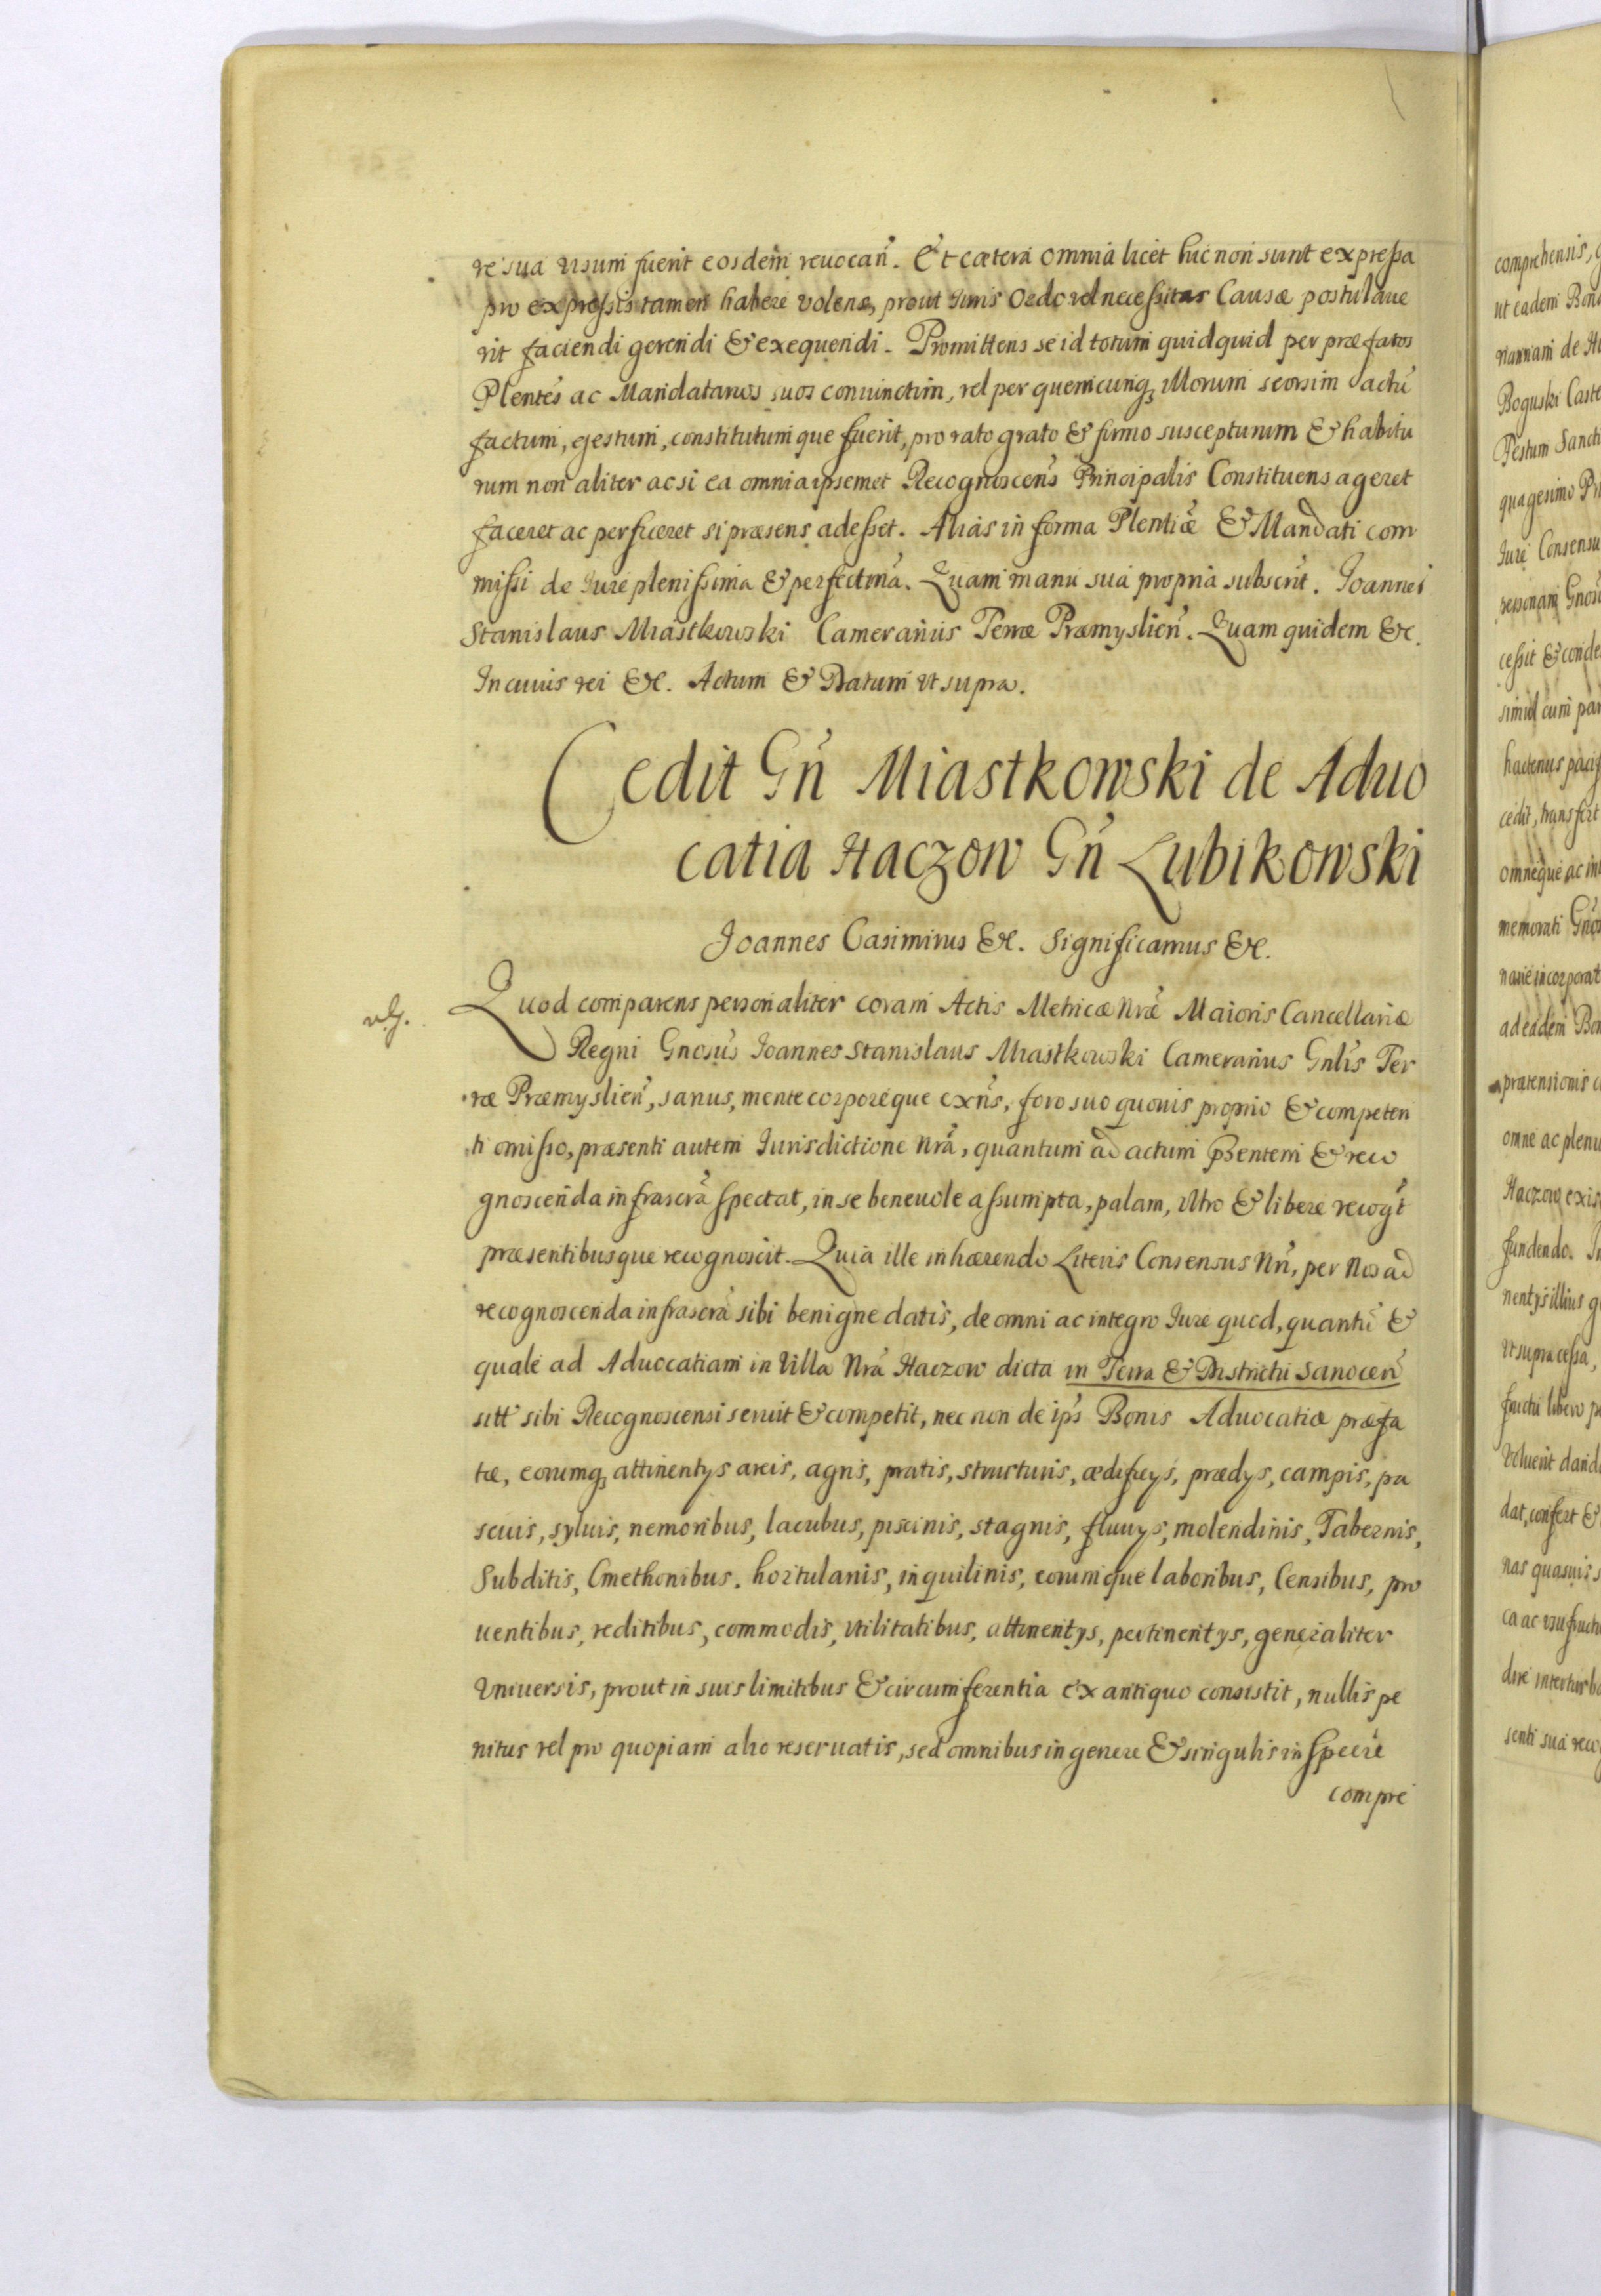 re sua visum fuerit eosdem reuocan̄. Et cætera omnia licet hic non sunt expressa
pro expressis tamen habere volens, prout Iuris Ordo vel necessitas Causæ postulaue
rit faciendi gerendi & exequendi. Promittens se id totum quidquid per præfatos
Plentes ac Mandatarios suos coniunctim, vel per quemcunq; illorum seorsim actū
factum, gestum, constitutumque fuerit, pro rato grato & firmo suscepturum & habitu
rum non aliter acsi ea omnia ipsemet Recognoscens Principalis Constituens ageret
faceret ac perficeret si præsens adesset. Alias in forma Plentiæ & Mandati com
missi de Iure plenissima & perfectma. Quam manu sua propria subscrit. Joannes
Stanislaus Miastkowski Camerarius Terræ Præmyslien̄. Quam quidem &c.
In cuius rei &c. Actum & Datum vt supra.
Cedit Gn̄ Miastkowski de Aduo
catia Haczow Gn̄ Lubikowski
Joannes Casimirus &c. Significamus &c.
Quod comparens personaliter coram Actis Metricæ Nræ Maioris Cancellariæ
Regni Gnosus Joannes Stanislaus Miastkowski Camerarius Gnlis Ter
ræ Præmyslien̄, sanus, mente corporeque exn̄s, foro suo quouis proprio & competen
ti omisso, præsenti autem Iurisdictione Nra, quantum ad actum pSentem & reco
gnoscenda infrascra spectat, in se beneuole assumpta, palam, vltro & libere recogt
præsentibusque recognoscit. Quia ille inhærendo Literis Consensus Nri, per Nos ad
recognoscenda infrascra sibi benigne datis, de omni ac integro Iure quod, quantū &
quale ad Aduocatiam in Villa Nra Haczow dicta in Terra & Districtu Sanocen̄
sitt sibi Recognoscensi seruit & competit, nec non de ip̄s Bonis Aduocatiæ præfa
tæ, eorumq; attinentys areis, agris, pratis, structuris, ædificys, prædys, campis, pa
scuis, syluis, nemoribus, lacubus, piscinis, stagnis, fluuys, molendinis, Tabernis,
Subditis, Cmethonibus. hortulanis, inquilinis, eorumique laboribus, Censibus, pro
uentibus, reditibus, commodis, vtilitatibus, attinentys, pertinentys, generaliter
Vniuersis, prout in suis limitibus & circumferentia ex antiquo consistit, nullis pe
nitus vel pro quopiam alio reseruatis, sed omnibus in genere & singulis in specie
compre
comprehensis,
ut eadem Bon
Boguski Caste
Festum Sancti
quagesimo Pri
Jure Consensu
personam Gnosi
cessit & conde
simul cum par
hactenus pacif
cedit, transfert
omneque ac in
memorati Gnos
narie incorporat
ad eadem Bon
prætensionis
omne ac plenu
Haczow exis
fundendo. In
nentys illius
vt supra cessa,
fructu libero
Voluerit dand
dat, confert &
nas quasuis
ca ac usufructu
senti sua reco